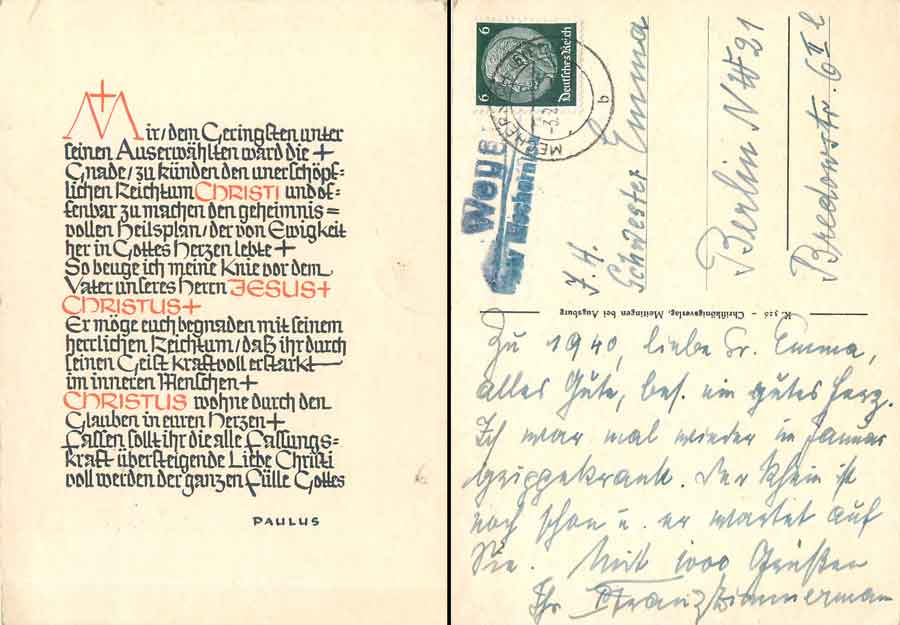 Mir/dem Geringsten unter
seinen Auserwählten ward die +
Gnade/zu künden den unerschöpf=
lichen Reichtum CHRISTI und of=
fenbar zu machen den geheimnis=
vollen Heilsplan/der von Ewigkeit
her in Gottes Herzen lebte +
So beuge ich meine Knie vor dem
Vater unseres Herrn JESUS +
CHRISTUS +
Er möge euch begnaden mit seinem
herrlichen Reichtum/daß ihr durch
seinen Geist kraftvoll erstarkt
im inneren Menschen +
CHRISTUS wohne durch den
Glauben in euren Herzen +
Fassen sollt ihr die alle Fassungs=
kraft übersteigende Liebe Christi
voll werden der ganzen Fülle Gottes
PAULUS
6 6
Deutsches Reich
b
Weye
Schwester Emma
Berlin NW 21
Bredowstr. 6 II l
K 526 – Christkönigsverlag, Meitingen bei Augsburg
Zu 1940, liebe Sr. Emma,
alles Gute, bes. ein gutes Herz.
Ich war mal wieder im Januar
grippekrank. Der Rhein ist
noch schön u. er wartet auf
Sie. Mit 1000 Grüßen
Ihr Franz Zimmermann